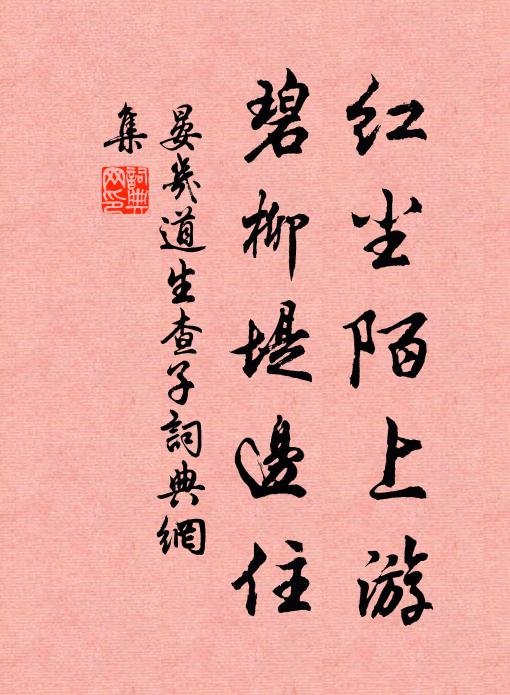 红尘陌上游
碧柳堤邊住
晏幾道生查子詞典網
集
詞典网印